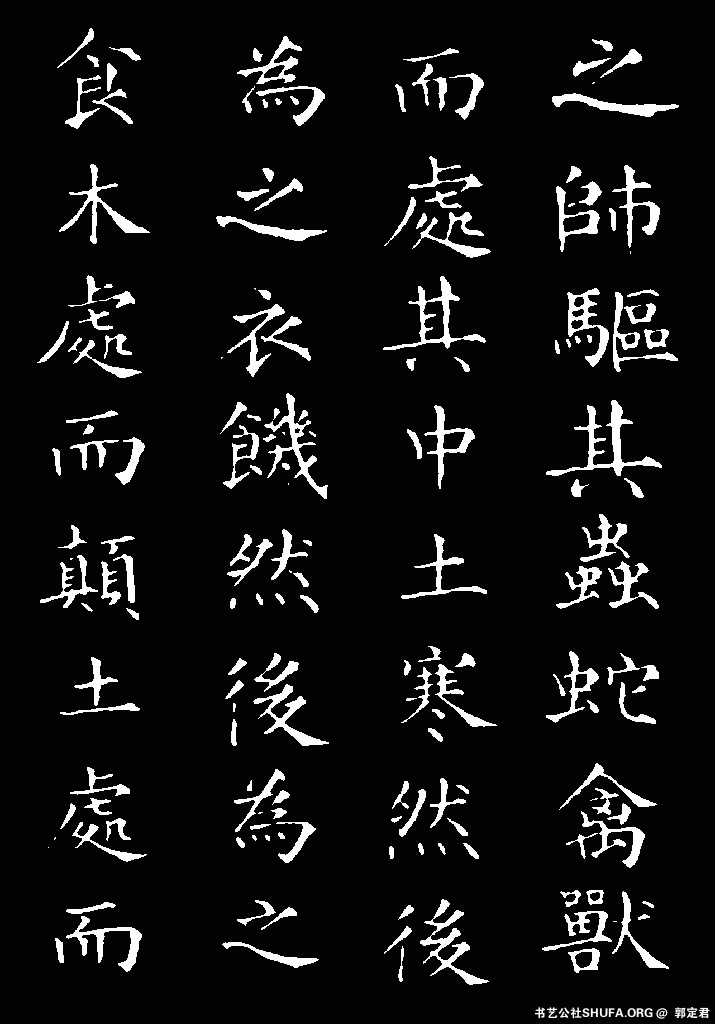 之師驅其蟲蛇禽獸
而處其中土寒然後
為之衣饑然後為之
食木處而顛土處而
书艺公社SHUFA.ORG @ 郭定君